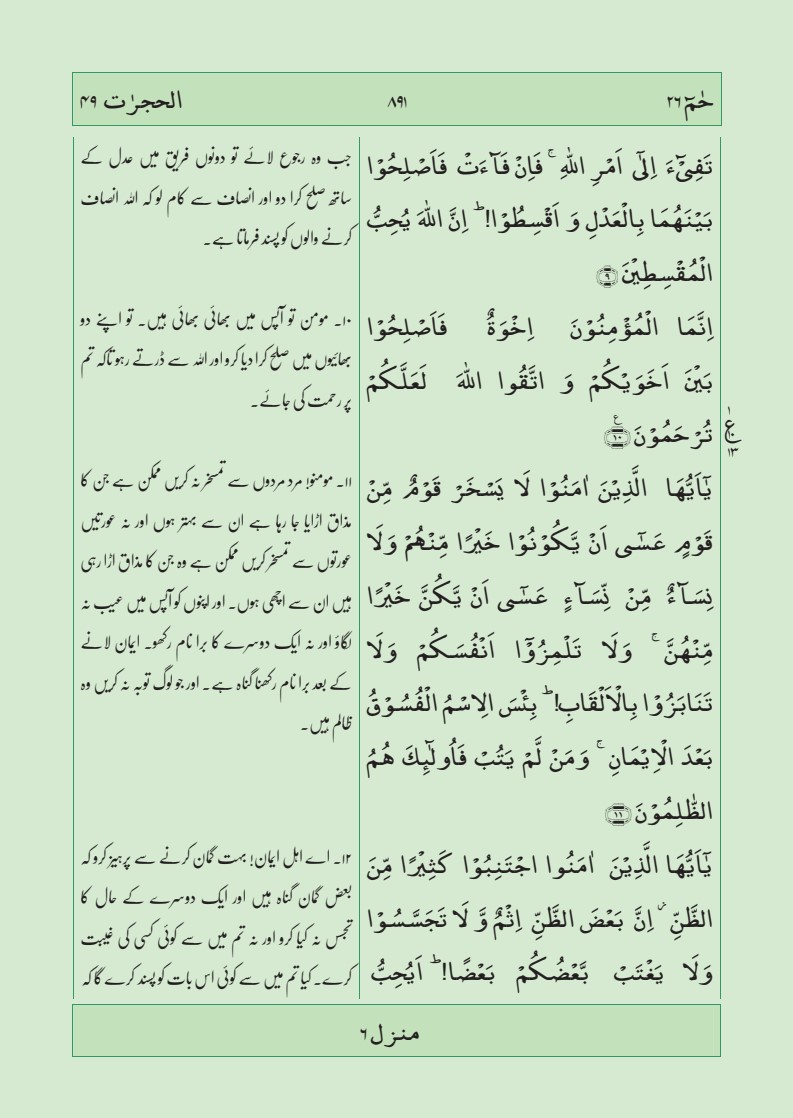 حٰمٓ ۲۶
۸۹۱
الحجرٰت ۴۹
تَفِیْٓءَ اِلٰۤی اَمْرِ اللّٰهِ ۚ فَاِنْ فَآءَتْ فَاَصْلِحُوْا
بَیْنَهُمَا بِالْعَدْلِ وَ اَقْسِطُوْا ؕ اِنَّ اللّٰهَ یُحِبُّ
الْمُقْسِطِیْنَ ۹
اِنَّمَا الْمُؤْمِنُوْنَ اِخْوَةٌ فَاَصْلِحُوْا
بَیْنَ اَخَوَیْكُمْ وَ اتَّقُوا اللّٰهَ لَعَلَّكُمْ
تُرْحَمُوْنَ ۱۰
ع
۱
۱۳
یٰۤاَیُّهَا الَّذِیْنَ اٰمَنُوْا لَا یَسْخَرْ قَوْمٌ مِّنْ
قَوْمٍ عَسٰۤی اَنْ یَّكُوْنُوْا خَیْرًا مِّنْهُمْ وَلَا
نِسَآءٌ مِّنْ نِّسَآءٍ عَسٰۤی اَنْ یَّكُنَّ خَیْرًا
مِّنْهُنَّ ۚ وَلَا تَلْمِزُوْۤا اَنْفُسَكُمْ وَلَا
تَنَابَزُوْا بِالْاَلْقَابِ ؕ بِئْسَ الِاسْمُ الْفُسُوْقُ
بَعْدَ الْاِیْمَانِ ۚ وَمَنْ لَّمْ یَتُبْ فَاُولٰٓئِكَ هُمُ
الظّٰلِمُوْنَ ۱۱
یٰۤاَیُّهَا الَّذِیْنَ اٰمَنُوا اجْتَنِبُوْا كَثِیْرًا مِّنَ
الظَّنِّ ۫ اِنَّ بَعْضَ الظَّنِّ اِثْمٌ وَّ لَا تَجَسَّسُوْا
وَلَا یَغْتَبْ بَّعْضُكُمْ بَعْضًا ؕ اَیُحِبُّ
جب وہ رجوع لائے تو دونوں فریق میں عدل کے
ساتھ صلح کرا دو اور انصاف سے کام لو کہ اللہ انصاف
کرنے والوں کو پسند فرماتا ہے۔
۱۰۔ مومن تو آپس میں بھائی بھائی ہیں۔ تو اپنے دو
بھائیوں میں صلح کرا دیا کرو اور اللہ سے ڈرتے رہو تاکہ تم
پر رحمت کی جائے۔
۱۱۔ مومنو! مرد مردوں سے تمسخر نہ کریں ممکن ہے جن کا
مذاق اڑایا جا رہا ہے ان سے بہتر ہوں اور نہ عورتیں
عورتوں سے تمسخر کریں ممکن ہے وہ جن کا مذاق اڑا رہی
ہیں ان سے اچھی ہوں۔ اور اپنوں کو آپس میں عیب نہ
لگاؤ اور نہ ایک دوسرے کا برا نام رکھو۔ ایمان لانے
کے بعد برا نام رکھنا گناہ ہے۔ اور جو لوگ توبہ نہ کریں وہ
ظالم ہیں۔
۱۲۔ اے اہل ایمان! بہت گمان کرنے سے پرہیز کرو کہ
بعض گمان گناہ ہیں اور ایک دوسرے کے حال کا
تجسّس نہ کیا کرو اور نہ تم میں سے کوئی کسی کی غیبت
کرے۔ کیا تم میں سے کوئی اس بات کو پسند کرے گا کہ
منزل ۶